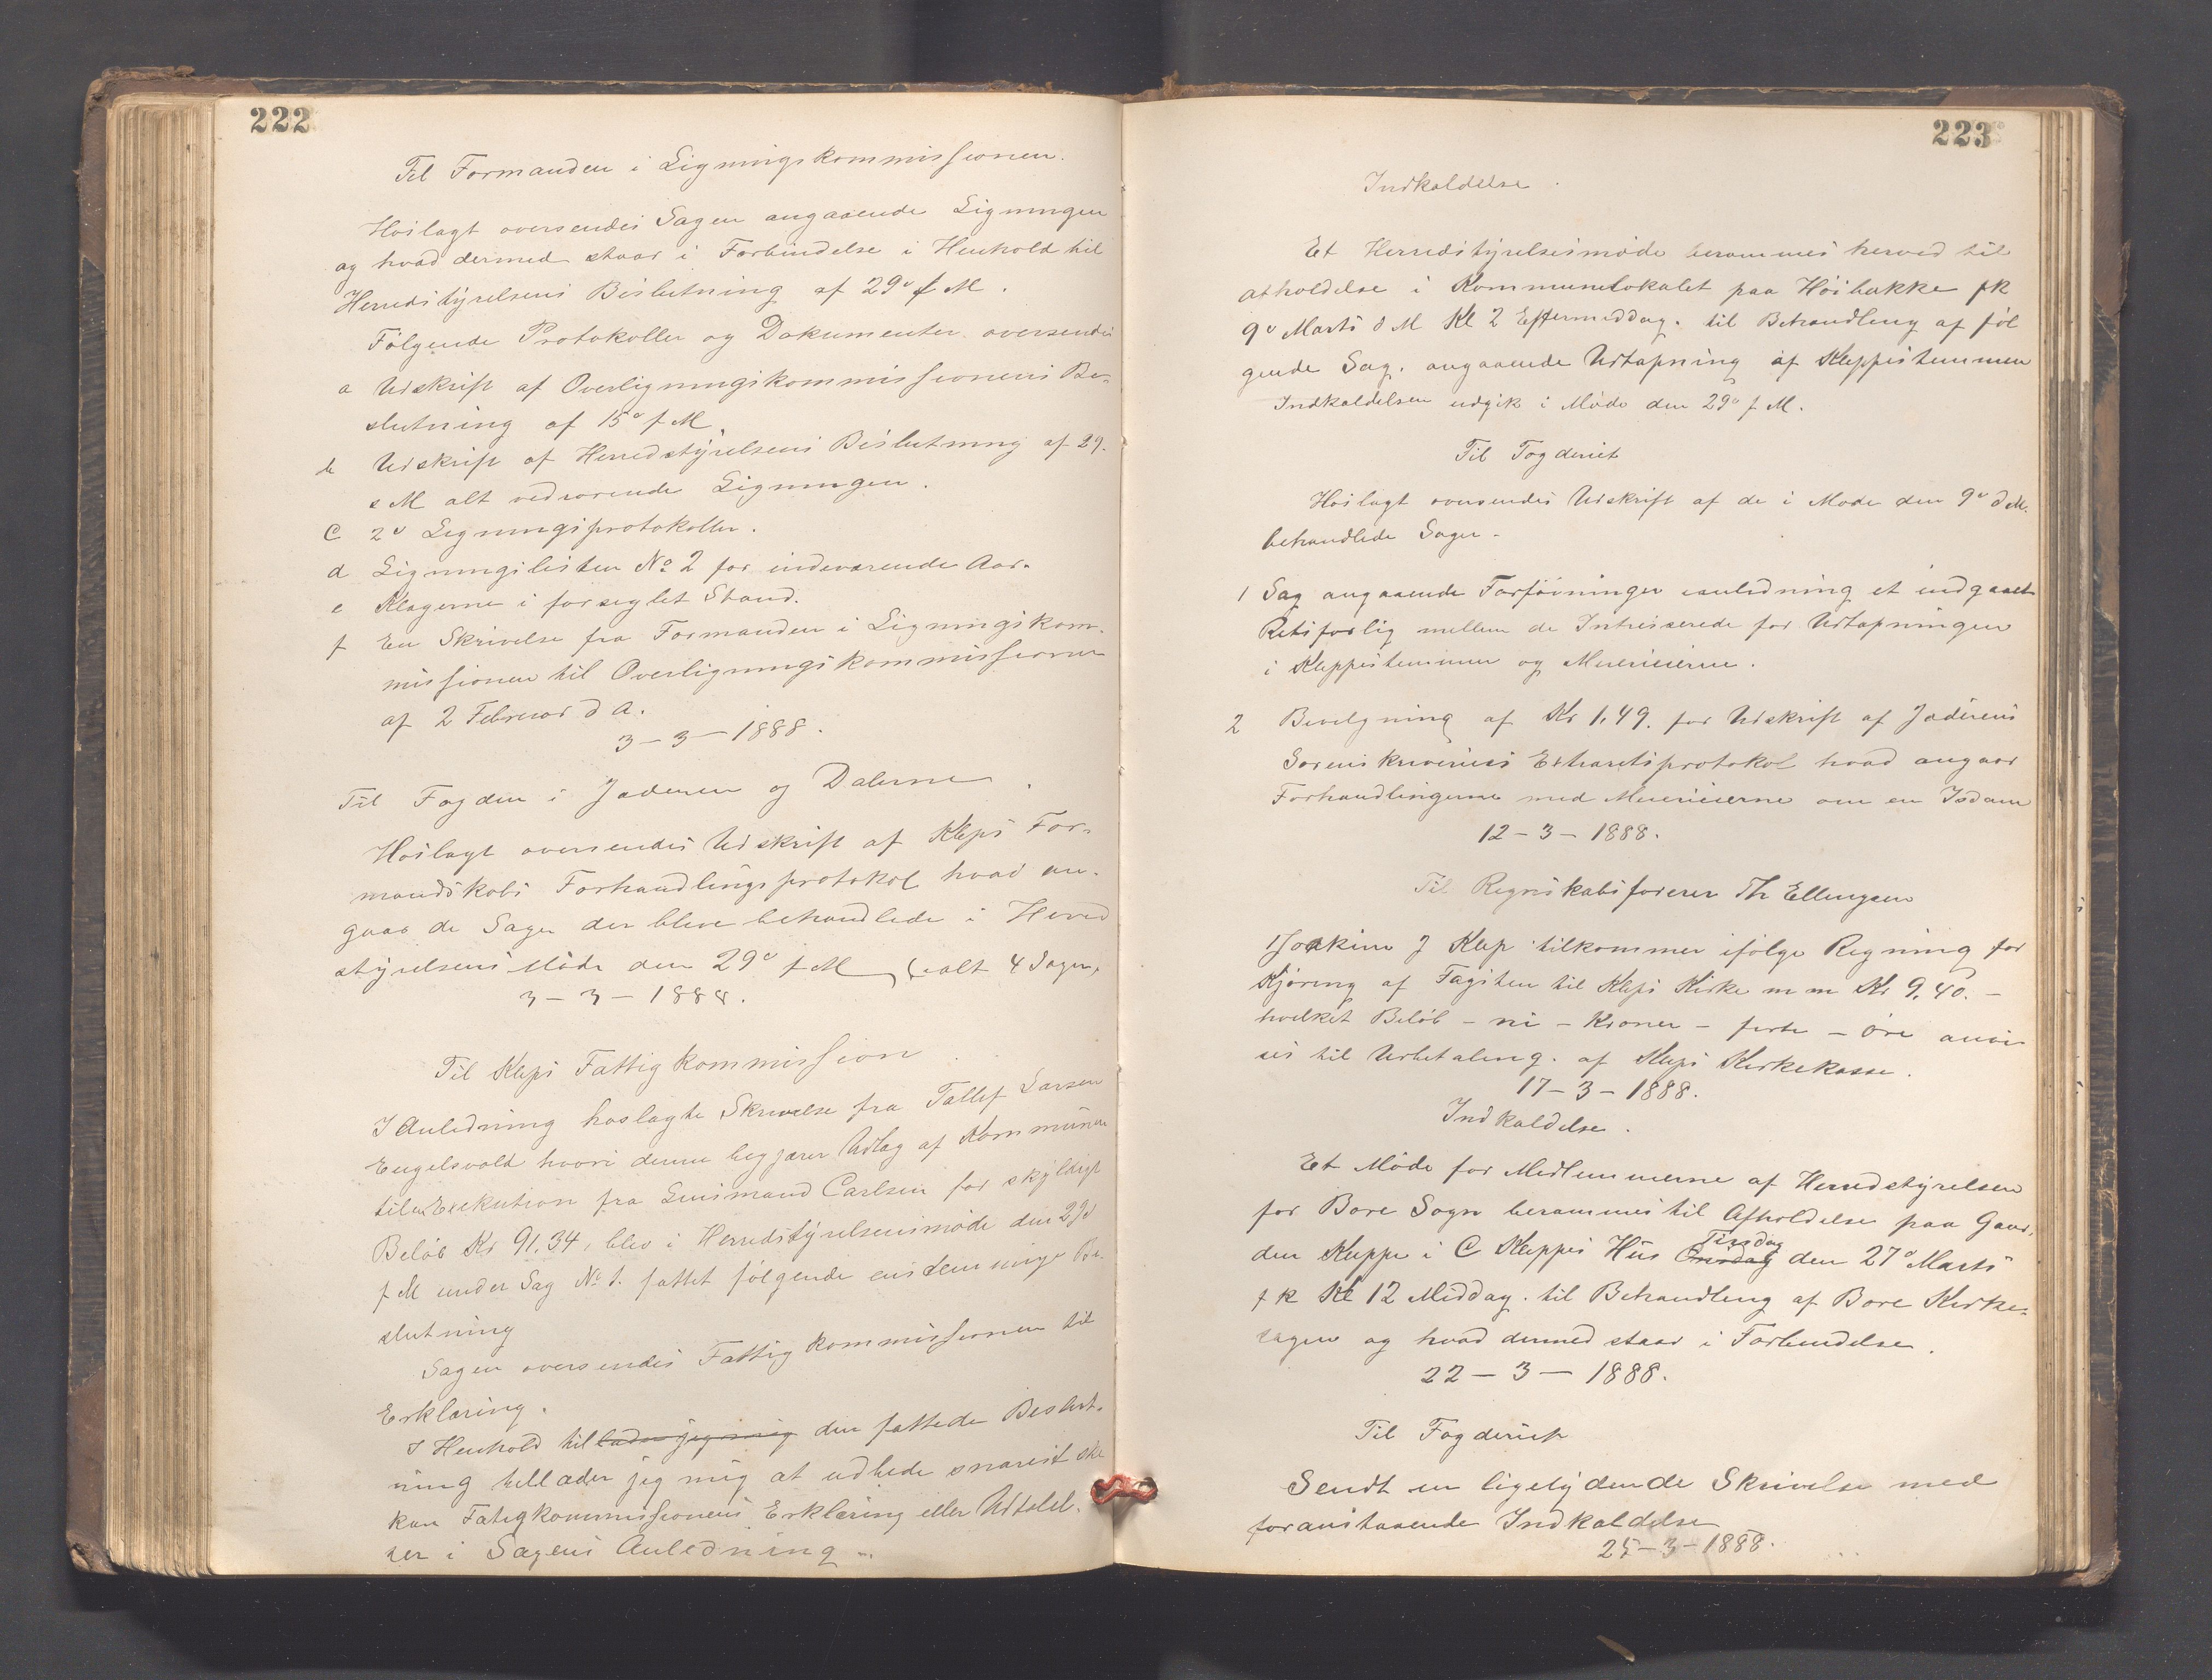 222
Til Formanden i Ligningskommissionen.
Hoslagt oversendes Sagen angaaende Ligningen
og hvad dermed staar i Forbindelse i Henhold til
Herredstyrelsens Beslutning af 29o f M.
Følgende Protokoller og Dokumenter oversendes
a Udskrift af Overligningskommissionens Be-
slutning af 15o f M.
b Udskrift af Herredstyrelsens Beslutning af 29.
s M alt vedrørende Ligningen.
c 2o Ligningsprotokoller.
d Ligningslisten No 2 for indeværende Aar.
e Klagerne i forseglet Stand.
f En Skrivelse fra Formanden i Ligningskom-
missionen til Overligningskommissionen
af 2 Februar d A.
3-3-1888.
Til Fogden i Jæderen og Dalerne.
Hoslagt oversendes Udskrift af Kleps For-
mandskabs Forhandlingsprotokol hvad an-
gaar de Sager der bleve behandlede i Herred
styrelsens Møde den 29o f M (ialt 4 Sager,
3-3-1888.
Til Kleps Fattigkommission.
I Anledning hoslagte Skrivelse fra Tollef Larsen
Engelsvold hvori denne begjærer Udlag af Kommunen
til en Exekution fra Lensmand Carlsen for skyldigt
Beløb Kr 91,34, blev i Herredstyrelsensmøde den 29o
f M under Sag No 1. fattet følgende enstemmige Be-
slutning
Sagen oversendes Fattigkommissionen til
Erklæring.
I Henhold til lader jeg mig den fattede Beslut-
ning tillader jeg mig at udbede snarest ske
kan Fatigkommissionens Erklæring eller Udtalel-
ser i Sagens Anledning.
223
Indkaldelse.
Et Herredstyrelsesmøde berammes herved til
afholdelse i Kommunelokalet paa Høibakke fk
9o Marts d M Kl 2 Eftermiddag. til Behandling af føl
gende Sag. angaaende Udtapning af Kleppestemmen
Indkaldelsen udgik i Møde den 29o f M.
Til Fogderiet
Hoslagt oversendes Udskrift af de i Møde den 9o d M.
behandlede Sager.
1 Sag angaaende Forføininger i anledning et indgaaet
Retsforlig mellem de Intresserede for Udtapningen
i Kleppestemmen og Meierieierne.
2 Bevilgning af Kr 1,49. for Udskrift af Jæderens
Sorenskriveries Extraretsprotokol hvad angaar
Forhandlingerne med Meierieierne om en Isdam
12-3-1888.
Til Regnskabsfører Th Ellingsen
Joakim J Klep tilkommer ifølge Regning for
Kjøring af Fagsten til Kleps Kirke m m Kr 9,40.-
hvilket Beløb - ni - Kroner - førti - øre anvi-
ses til Udbetaling. af Kleps Kirkekasse.
17-3-1888.
Indkaldelse.
Et Møde for Medlemmerne af Herredstyrelsen
for Bore Sogn berammes til Afholdelse paa Gaar-
den Kleppe i C Kleppes Hus Onsdag Tirsdag den 27o Marts
f k Kl 12 Middag. til Behandling af Bore Kirke-
sagen og hvad dermed staar i Forbindelse.
22-3-1888.
Til Fogderiet
Sendt en ligelydende Skrivelse med
foranstaaende Indkaldelse
25-3-1888.